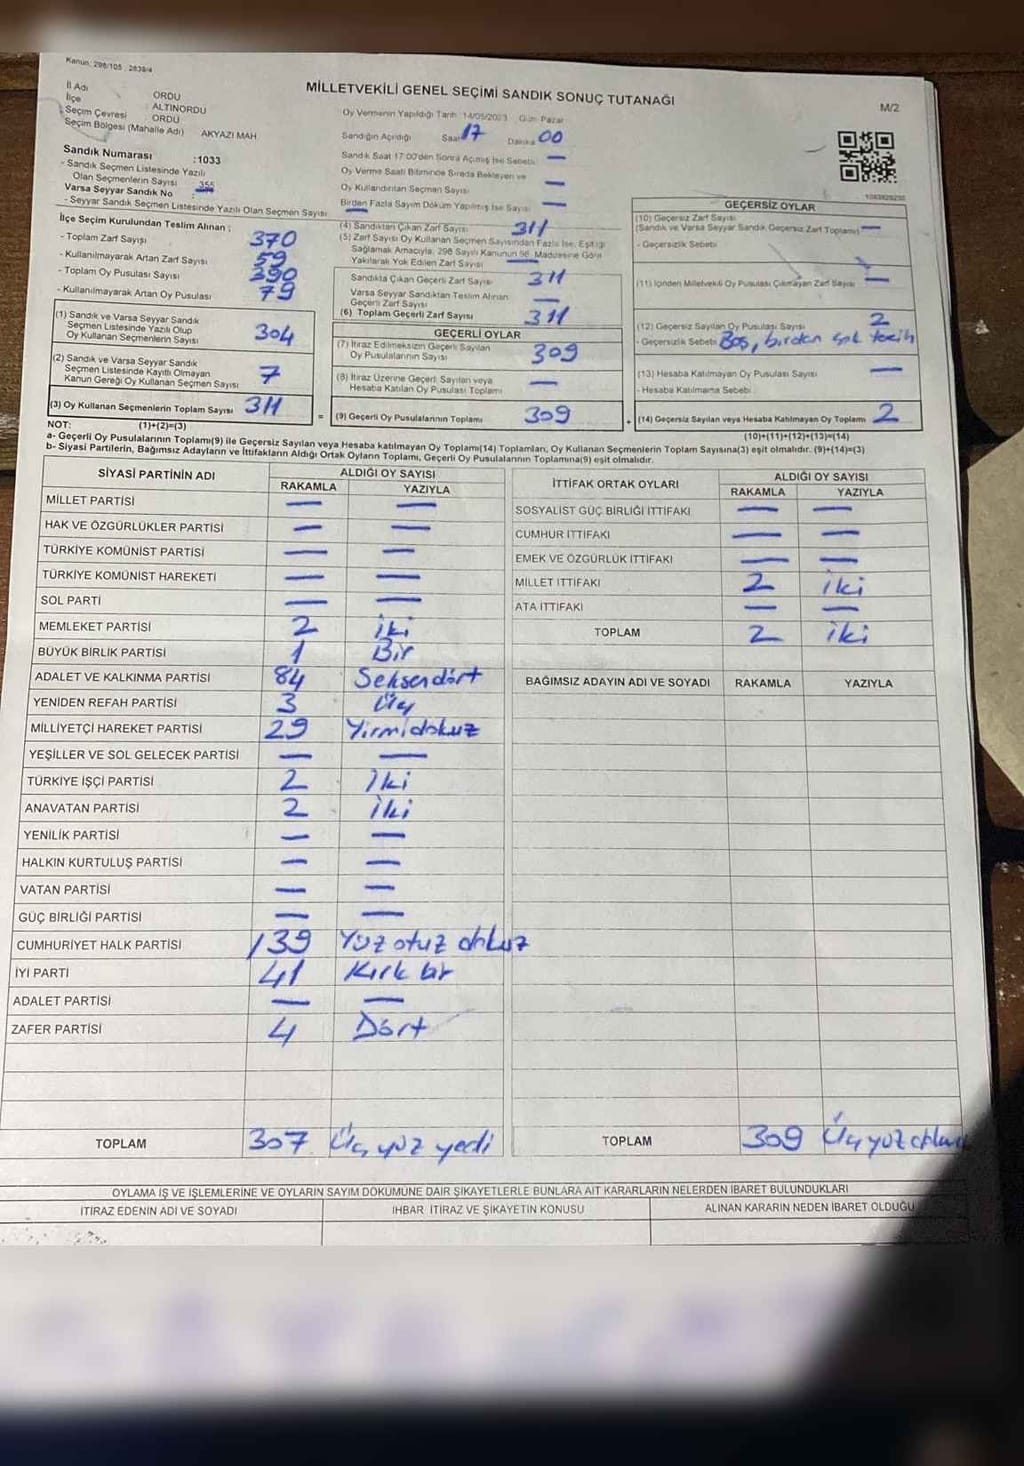 Kanun: 298/105 , 2839/4
MİLLETVEKİLİ GENEL SEÇİMİ SANDIK SONUÇ TUTANAĞI
M/2
İl Adı ORDU
İlçe ALTINORDU
Seçim Çevresi : ORDU
Seçim Bölgesi (Mahalle Adı) AKYAZI MAH
Sandık Numarası :1033
- Sandık Seçmen Listesinde Yazılı
Olan Seçmenlerin Sayısı : 355
Varsa Seyyar Sandık No
- Seyyar Sandık Seçmen Listesinde Yazılı Olan Seçmen Sayısı —
Oy Vermenin Yapıldığı Tarih 14/05/2023 Gün: Pazar
Sandığın Açıldığı Saat 17 Dakika 00
Sandık Saat 17:00'den Sonra Açılmış İse Sebebi —
Oy Verme Saati Bitiminde Sırada Bekleyen ve
Oy Kullandırılan Seçmen Sayısı —
Birden Fazla Sayım Döküm Yapılmış İse Sayısı —
İlçe Seçim Kurulundan Teslim Alınan ;
- Toplam Zarf Sayısı 370
- Kullanılmayarak Artan Zarf Sayısı 59
- Toplam Oy Pusulası Sayısı 390
- Kullanılmayarak Artan Oy Pusulası 79
(1) Sandık ve Varsa Seyyar Sandık
Seçmen Listesinde Yazılı Olup
Oy Kullanan Seçmenlerin Sayısı 304
(2) Sandık ve Varsa Seyyar Sandık
Seçmen Listesinde Kayıtlı Olmayan
Kanun Gereği Oy Kullanan Seçmen Sayısı 7
(3) Oy Kullanan Seçmenlerin Toplam Sayısı 311
(4) Sandıktan Çıkan Zarf Sayısı 311
(5) Zarf Sayısı Oy Kullanan Seçmen Sayısından Fazla İse, Eşitliği
Sağlamak Amacıyla, 298 Sayılı Kanunun 98. Maddesine Göre
Yakılarak Yok Edilen Zarf Sayısı —
Sandıkta Çıkan Geçerli Zarf Sayısı 311
Varsa Seyyar Sandıktan Teslim Alınan
Geçerli Zarf Sayısı —
(6) Toplam Geçerli Zarf Sayısı 311
GEÇERLİ OYLAR
(7) İtiraz Edilmeksizin Geçerli Sayılan
Oy Pusulalarının Sayısı 309
(8) İtiraz Üzerine Geçerli Sayılan veya
Hesaba Katılan Oy Pusulası Toplamı —
= (9) Geçerli Oy Pusulalarının Toplamı 309
GEÇERSİZ OYLAR
(10) Geçersiz Zarf Sayısı
(Sandık ve Varsa Seyyar Sandık Geçersiz Zarf Toplamı) —
- Geçersizlik Sebebi
(11) İçinden Milletvekili Oy Pusulası Çıkmayan Zarf Sayısı —
(12) Geçersiz Sayılan Oy Pusulası Sayısı 2
- Geçersizlik Sebebi Boş, birden çok tercih
(13) Hesaba Katılmayan Oy Pusulası Sayısı —
- Hesaba Katılmama Sebebi
+ (14) Geçersiz Sayılan veya Hesaba Katılmayan Oy Toplamı 2
NOT: (1)+(2)=(3) (10)+(11)+(12)+(13)=(14)
a- Geçerli Oy Pusulalarının Toplamı(9) ile Geçersiz Sayılan veya Hesaba katılmayan Oy Toplamı(14) Toplamları, Oy Kullanan Seçmenlerin Toplam Sayısına(3) eşit olmalıdır. (9)+(14)=(3)
b- Siyasi Partilerin, Bağımsız Adayların ve İttifakların Aldığı Ortak Oyların Toplamı, Geçerli Oy Pusulalarının Toplamına(9) eşit olmalıdır.
SİYASİ PARTİNİN ADI ALDIĞI OY SAYISI
RAKAMLA YAZIYLA
MİLLET PARTİSİ — —
HAK VE ÖZGÜRLÜKLER PARTİSİ — —
TÜRKİYE KOMÜNİST PARTİSİ — —
TÜRKİYE KOMÜNİST HAREKETİ — —
SOL PARTİ — —
MEMLEKET PARTİSİ 2 iki
BÜYÜK BİRLİK PARTİSİ 1 Bir
ADALET VE KALKINMA PARTİSİ 84 Seksendört
YENİDEN REFAH PARTİSİ 3 Üç
MİLLİYETÇİ HAREKET PARTİSİ 29 Yirmidokuz
YEŞİLLER VE SOL GELECEK PARTİSİ — —
TÜRKİYE İŞÇİ PARTİSİ 2 İki
ANAVATAN PARTİSİ 2 İki
YENİLİK PARTİSİ — —
HALKIN KURTULUŞ PARTİSİ — —
VATAN PARTİSİ — —
GÜÇ BİRLİĞİ PARTİSİ — —
CUMHURİYET HALK PARTİSİ 139 Yüz otuz dokuz
İYİ PARTİ 41 Kırk bir
ADALET PARTİSİ — —
ZAFER PARTİSİ 4 Dört
TOPLAM 307 Üç yüz yedi
İTTİFAK ORTAK OYLARI ALDIĞI OY SAYISI
RAKAMLA YAZIYLA
SOSYALİST GÜÇ BİRLİĞİ İTTİFAKI — —
CUMHUR İTTİFAKI — —
EMEK VE ÖZGÜRLÜK İTTİFAKI — —
MİLLET İTTİFAKI 2 iki
ATA İTTİFAKI — —
TOPLAM 2 iki
BAĞIMSIZ ADAYIN ADI VE SOYADI RAKAMLA YAZIYLA
TOPLAM 309 Üç yüz dokuz
OYLAMA İŞ VE İŞLEMLERİNE VE OYLARIN SAYIM DÖKÜMÜNE DAİR ŞİKAYETLERLE BUNLARA AİT KARARLARIN NELERDEN İBARET BULUNDUKLARI
İTİRAZ EDENİN ADI VE SOYADI İHBAR İTİRAZ VE ŞİKAYETİN KONUSU ALINAN KARARIN NEDEN İBARET OLDUĞU